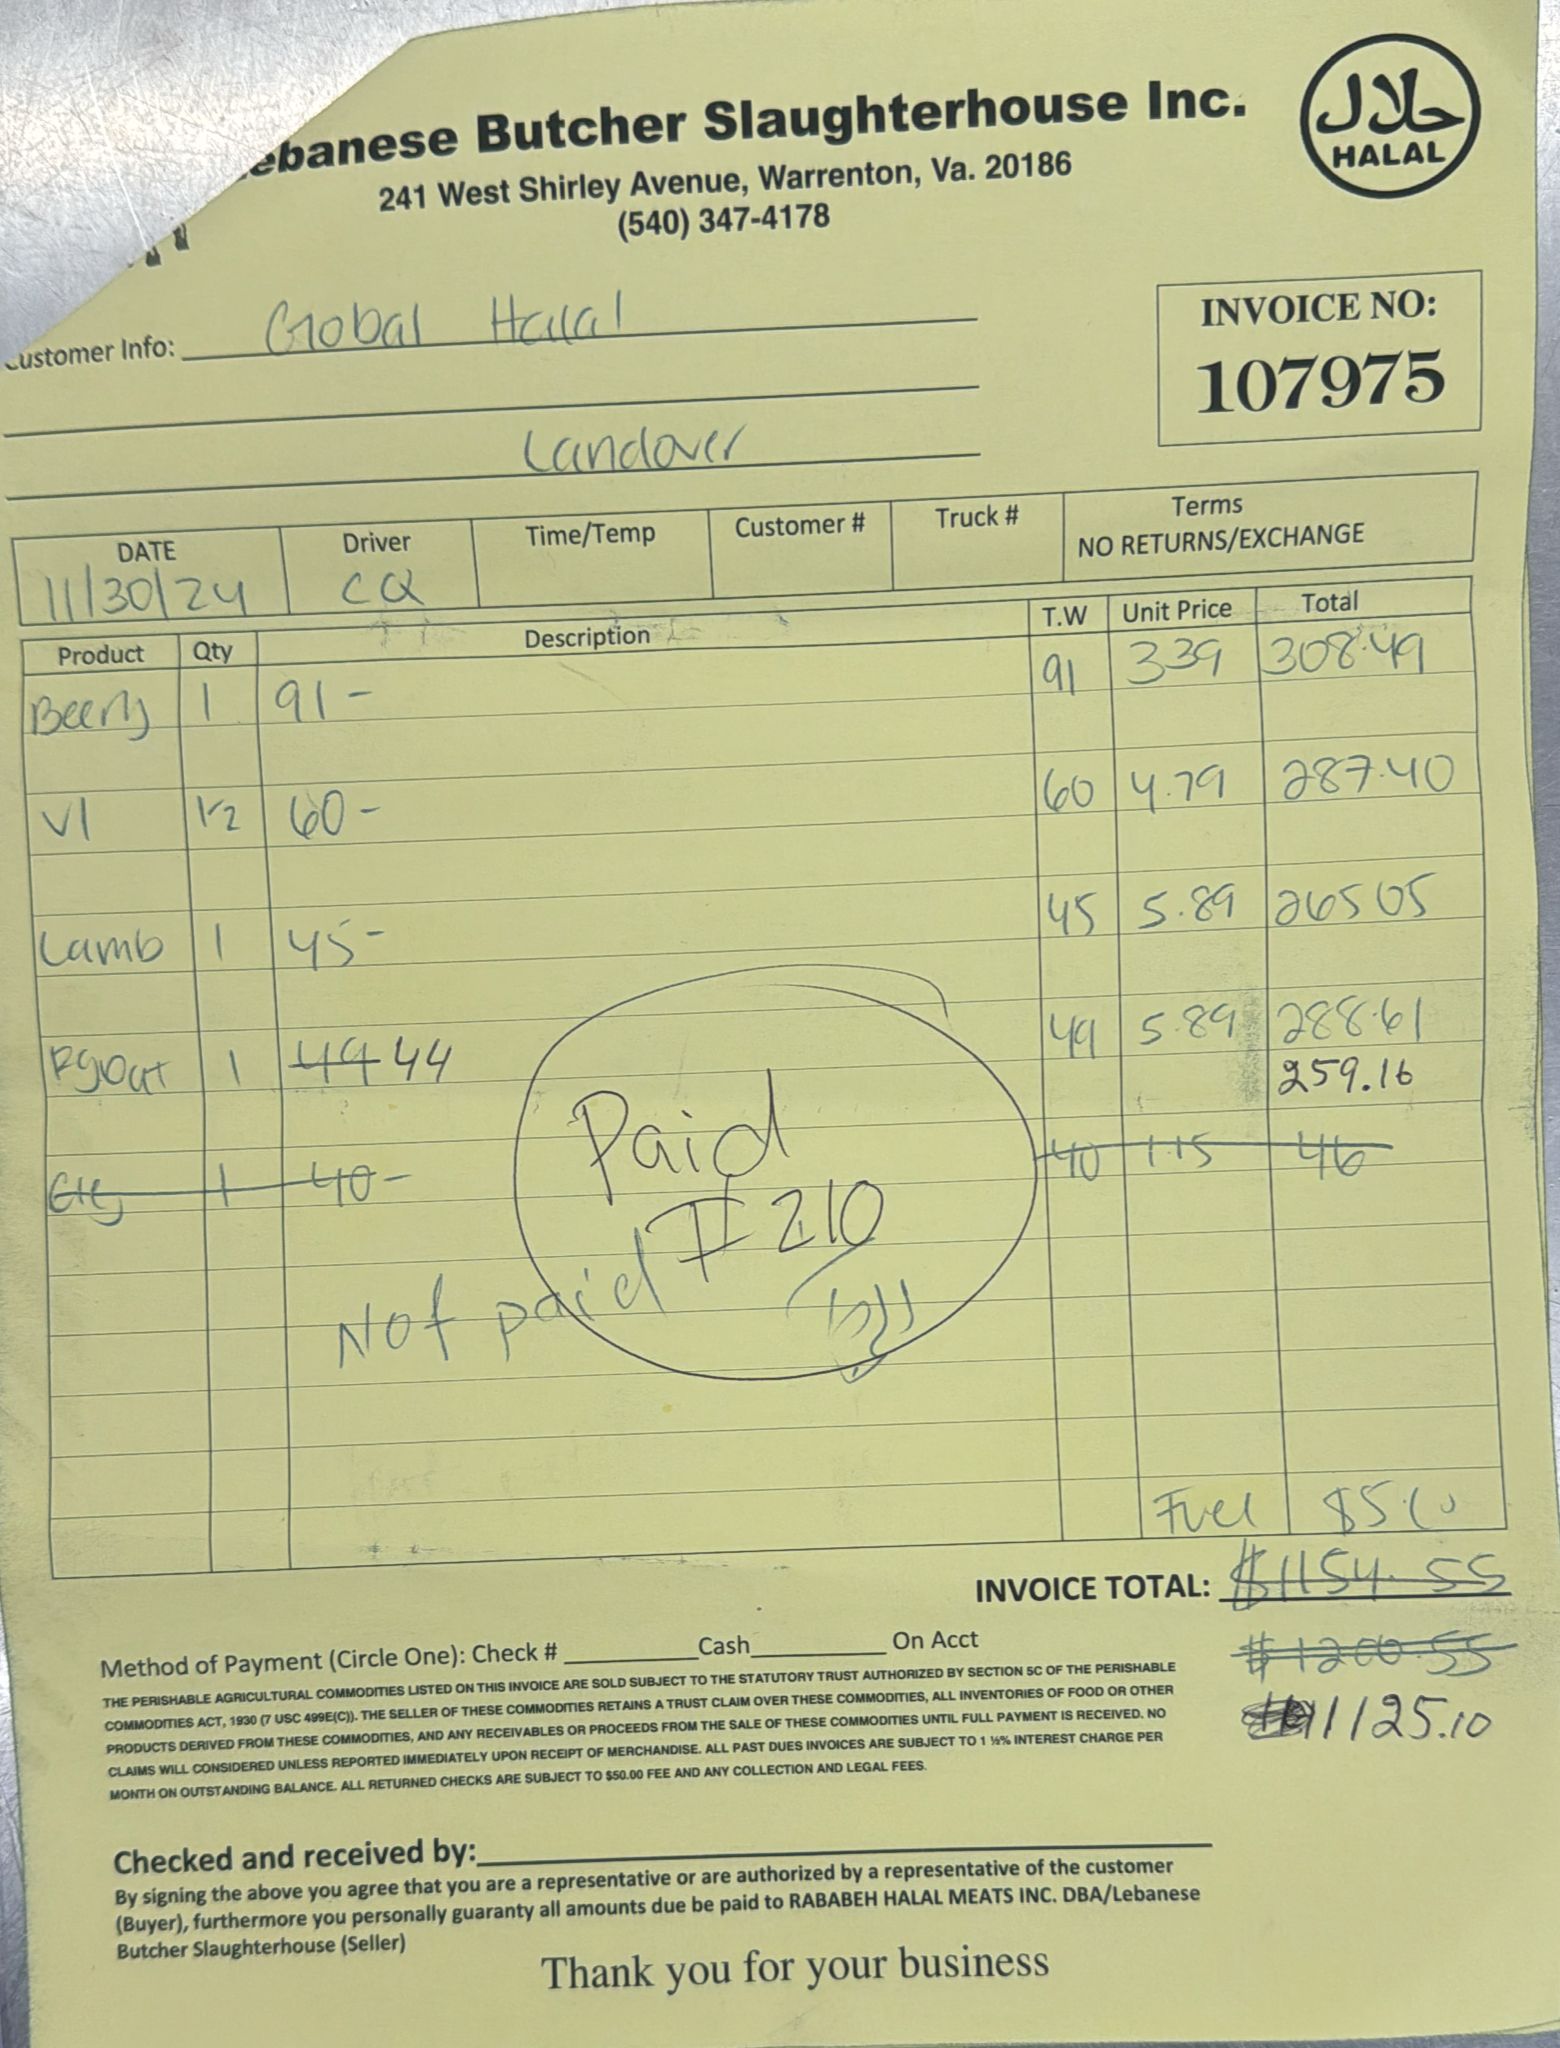 ebanese Butcher Slaughterhouse Inc.
حلال
HALAL
241 West Shirley Avenue, Warrenton, Va. 20186
(540) 347-4178
INVOICE NO:
107975
ustomer Info: Global Halal
Landover
DATE Driver Time/Temp Customer # Truck # Terms
NO RETURNS/EXCHANGE
11/30/24 CQ
Product Qty Description T.W Unit Price Total
1 91- 91 339 308.49
V1 1/2 60- 60 4.79 287.40
Lamb 1 45- 45 5.89 265 05
Rgoat 1 49 44 49 5.89 288.61
259.16
1 40- 40 1.15 46
Paid
#210
Not paid
Fuel $5.
INVOICE TOTAL: $1154.55
Method of Payment (Circle One): Check # Cash On Acct
$1200.55
1125.10
THE PERISHABLE AGRICULTURAL COMMODITIES LISTED ON THIS INVOICE ARE SOLD SUBJECT TO THE STATUTORY TRUST AUTHORIZED BY SECTION 5C OF THE PERISHABLE
COMMODITIES ACT, 1930 (7 USC 499E(C)). THE SELLER OF THESE COMMODITIES RETAINS A TRUST CLAIM OVER THESE COMMODITIES, ALL INVENTORIES OF FOOD OR OTHER
PRODUCTS DERIVED FROM THESE COMMODITIES, AND ANY RECEIVABLES OR PROCEEDS FROM THE SALE OF THESE COMMODITIES UNTIL FULL PAYMENT IS RECEIVED. NO
CLAIMS WILL CONSIDERED UNLESS REPORTED IMMEDIATELY UPON RECEIPT OF MERCHANDISE. ALL PAST DUES INVOICES ARE SUBJECT TO 1 ½% INTEREST CHARGE PER
MONTH ON OUTSTANDING BALANCE. ALL RETURNED CHECKS ARE SUBJECT TO $50.00 FEE AND ANY COLLECTION AND LEGAL FEES.
Checked and received by:
By signing the above you agree that you are a representative or are authorized by a representative of the customer
(Buyer), furthermore you personally guaranty all amounts due be paid to RABABEH HALAL MEATS INC. DBA/Lebanese
Butcher Slaughterhouse (Seller)
Thank you for your business